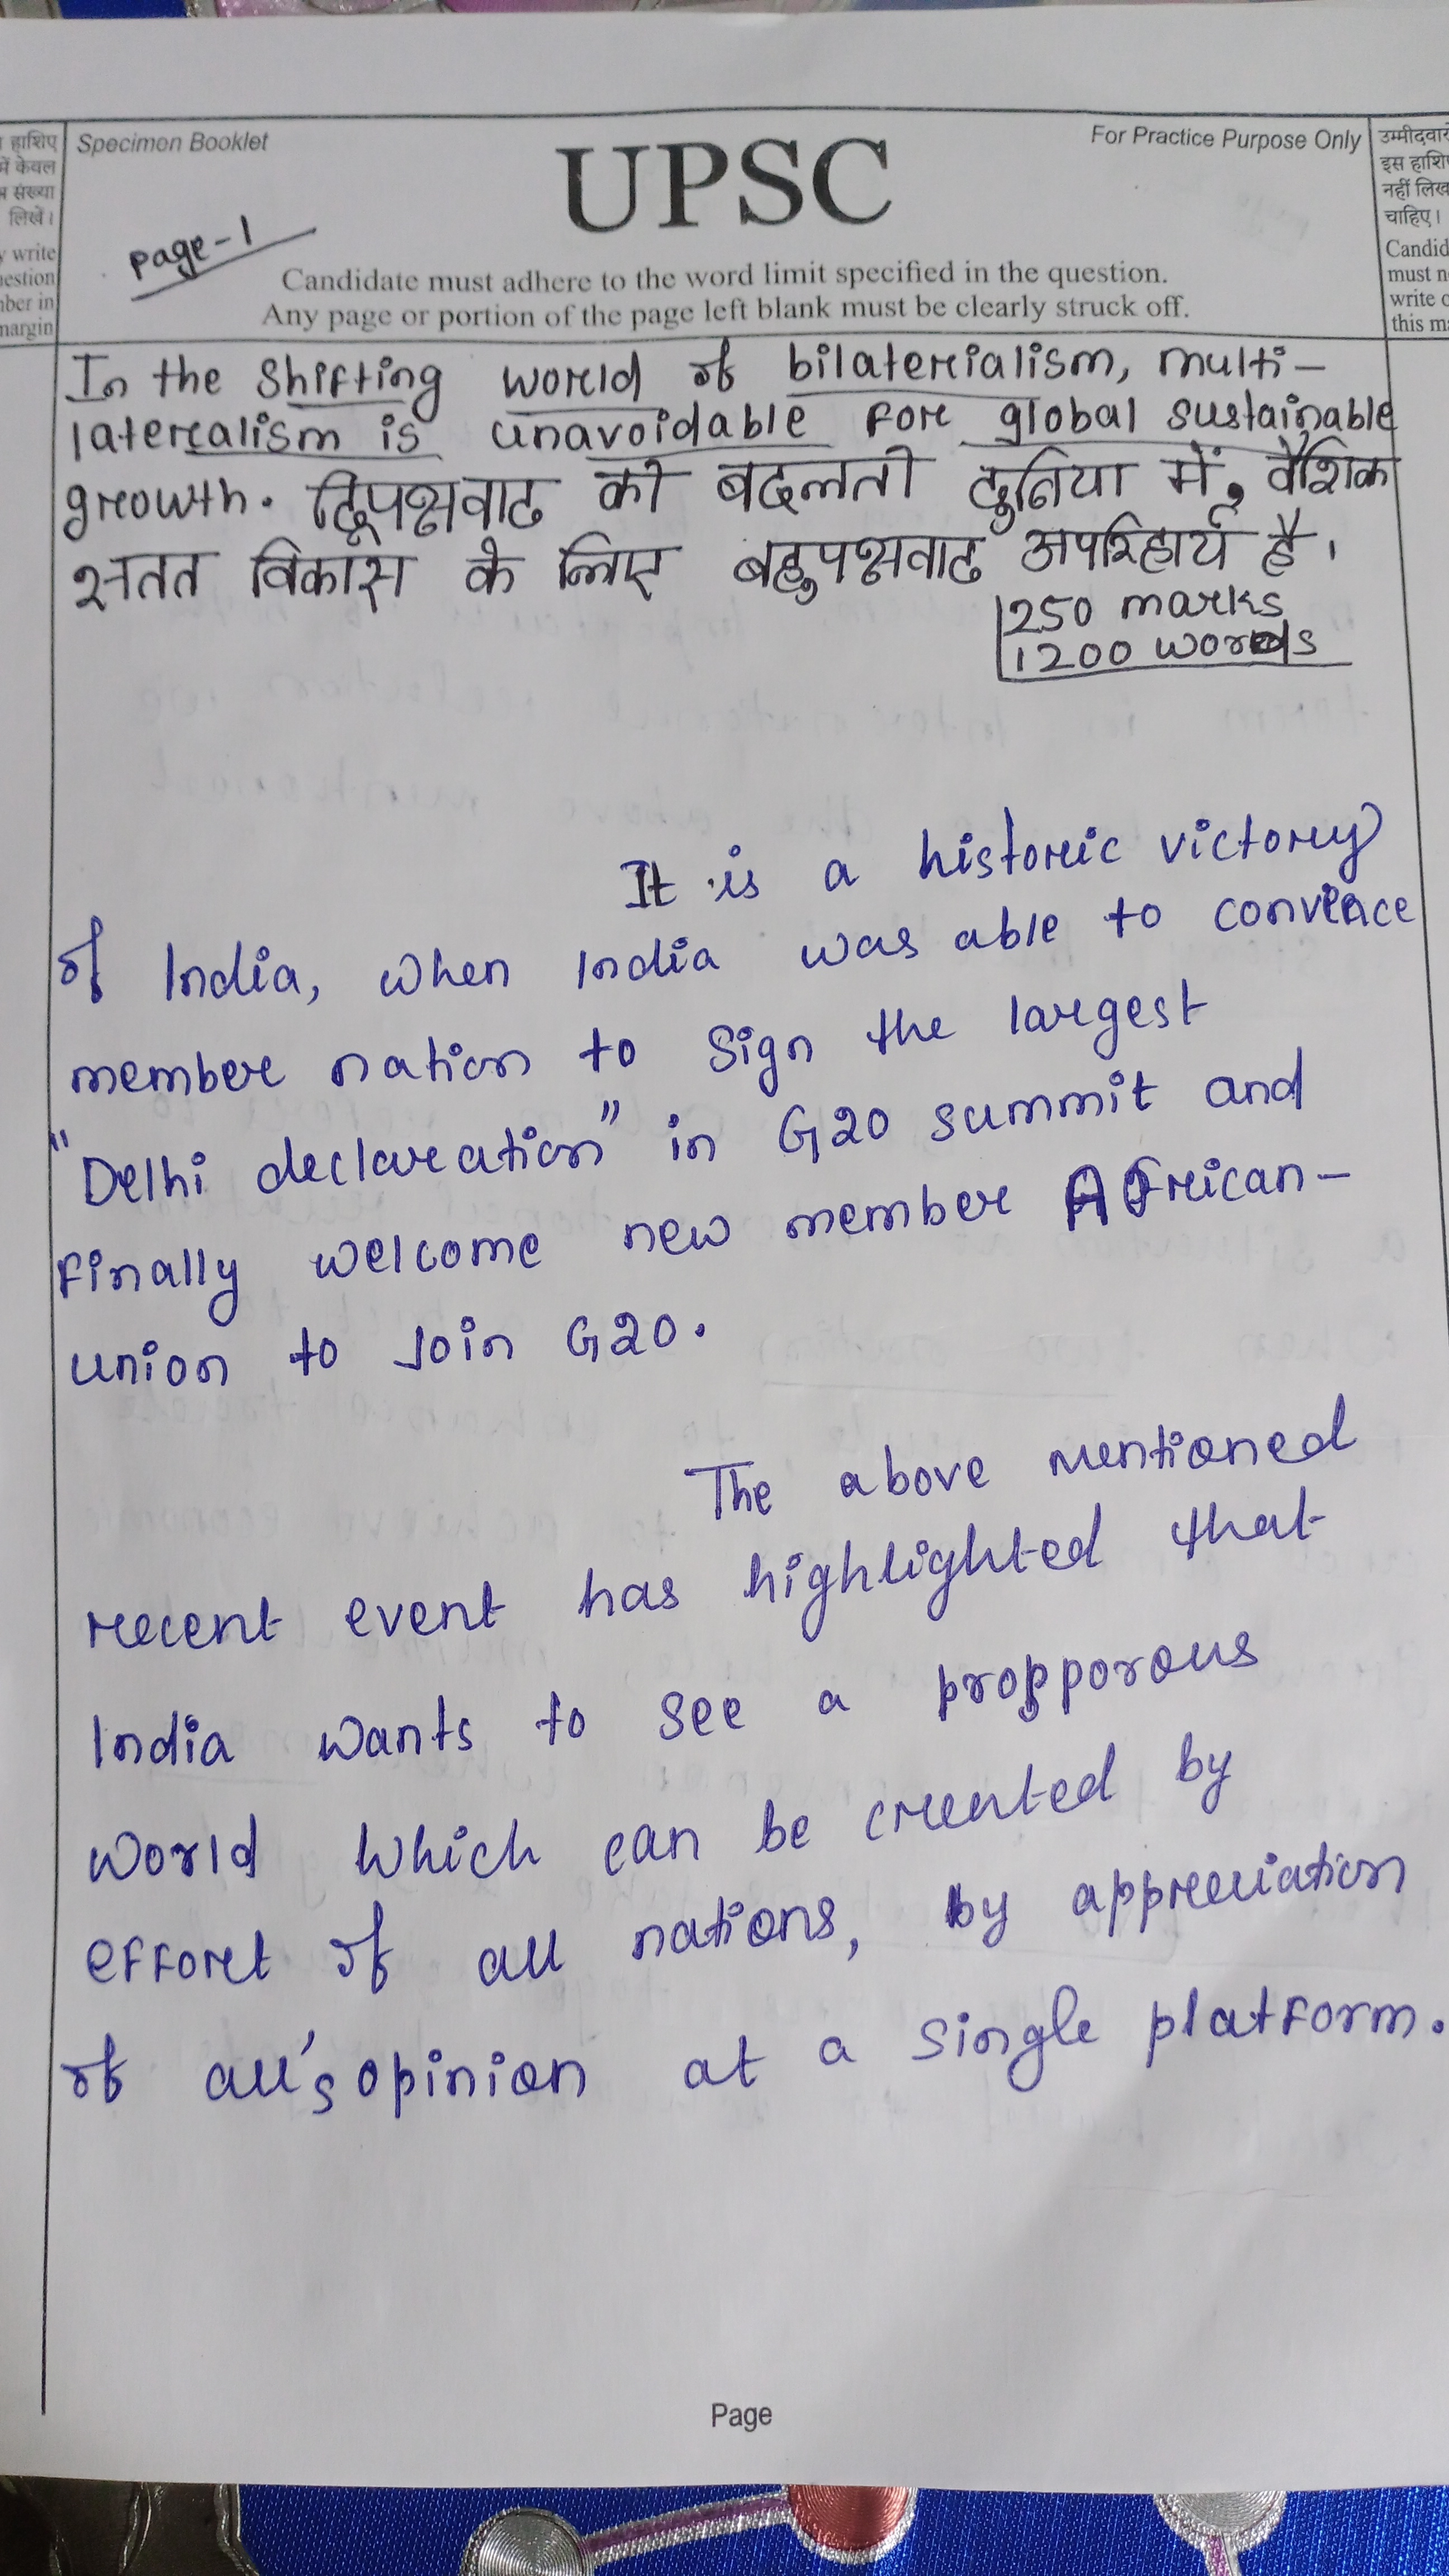 हाशिए
में केवल
संख्या
लिखें।
write
in
margin
Specimen Booklet
UPSC
For Practice Purpose Only
Page-1
Candidate must adhere to the word limit specified in the question.
Any page or portion of the page left blank must be clearly struck off.
उम्मीदवार
इस
नहीं
चाहिए।
must
write
this
In the Shifting world of bilaterialism, multi-
laterealism is unavoidable fore global sustainable
growth. द्विपक्षवाद की बदलती दुनिया में, वैशिक
सतत विकास के लिए बहुपक्षवाद अपरिहार्य है।
250 marks
1200 words
It is a historic victory
of India, when India was able to convince
member nation to sign the largest
"Delhi declaration" in G20 summit and
finally welcome new member African-
union to Join G20.
The above mentioned
recent event has highlighted that
India wants to see a propporous
world which can be created by
effort of all nations, by appreciation
of all's opinion at a single platform.
Page